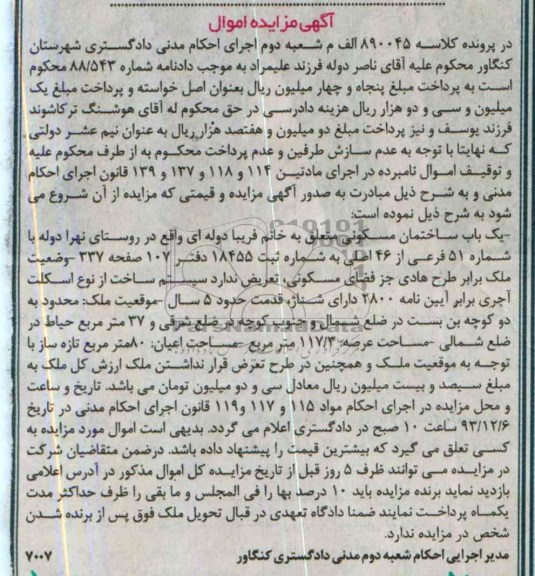 آگهی مزایده اموال
در پرونده کلاسه ۸۹۰۰۴۵ الف م شعبه دوم اجرای احکام مدنی دادگستری شهرستان
کنگاور محکوم علیه آقای ناصر دوله فرزند علیمراد به موجب دادنامه شماره ۸۸/۵۴۳ محکوم
است به پرداخت مبلغ پنجاه و چهار میلیون ریال بعنوان اصل خواسته و پرداخت مبلغ یک
میلیون و سی و دو هزار ریال هزینه دادرسی در حق محکوم له آقای هوشنگ ترکاشوند
فرزند یوسف و نیز پرداخت مبلغ دو میلیون و هفتصد هزار ریال به عنوان نیم عشر دولتی
که نهایتا با توجه به عدم سازش طرفین و عدم پرداخت محکوم به از طرف محکوم علیه
و توقیف اموال نامبرده در اجرای مادتین ۱۱۴ و ۱۱۸ و ۱۳۷ و ۱۳۹ قانون اجرای احکام
مدنی و به شرح ذیل مبادرت به صدور آگهی مزایده و قیمتی که مزایده از آن شروع می
شود به شرح ذیل نموده است:
-یک باب ساختمان مسکونی متعلق به خانم فریبا دوله ای واقع در روستای نهرا دوله با
شماره ۵۱ فرعی از ۴۶ اصلی به شماره ثبت ۱۸۴۵۵ دفتر ۱۰۷ صفحه ۳۳۷ -وضعیت
ملک برابر طرح هادی جز فضای مسکونی، تعریض ندارد سیستم ساخت از نوع اسکلت
آجری برابر آیین نامه ۲۸۰۰ دارای شناژ، قدمت حدود ۵ سال -موقعیت ملک: محدود به
دو کوچه بن بست در ضلع شمال و جنوب کوچه در ضلع شرقی و ۳۷ متر مربع حیاط در
ضلع شمالی -مساحت عرصه: ۱۱۷/۳ متر مربع -مساحت اعیان: ۸۰متر مربع تازه ساز با
توجه به موقعیت ملک و همچنین در طرح تعرض قرار نداشتن ملک ارزش کل ملک به
مبلغ سیصد و بیست میلیون ریال معادل سی و دو میلیون تومان می باشد. تاریخ و ساعت
و محل مزایده در اجرای احکام مواد ۱۱۵ و ۱۱۷ و ۱۱۹ قانون اجرای احکام مدنی در تاریخ
۹۳/۱۲/۶ ساعت ۱۰ صبح در دادگستری اعلام می گردد. بدیهی است اموال مورد مزایده به
کسی تعلق می گیرد که بیشترین قیمت را پیشنهاد داده باشد. درضمن متقاضیان شرکت
در مزایده می توانند ظرف ۵ روز قبل از تاریخ مزایده کل اموال مذکور در آدرس اعلامی
بازدید نماید برنده مزایده باید ۱۰ درصد بها را فی المجلس و ما بقی را ظرف حداکثر مدت
یکماه پرداخت نمایند ضمنا دادگاه تعهدی در قبال تحویل ملک فوق پس از برنده شدن
شخص در مزایده ندارد.
مدیر اجرایی احکام شعبه دوم مدنی دادگستری کنگاور ۷۰۰۷